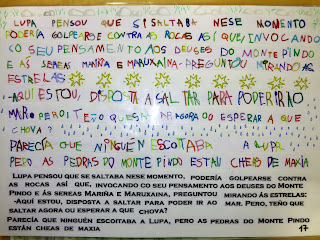 LUPA PENSOU QUE SI SALTABA NESE MOMENTO
PODERÍA GOLPEARSE CONTRA AS ROCAS ASÍ QUE, INVOCANDO
CO SEU PENSAMENTO AOS DEUSES DO MONTE PINDO
E ÁS SEREAS MARIÑA E MARUXAINA-PREGUNTOU MIRANDO AS
ESTRELAS:
-AQUÍ ESTOU, DISPOSTA A SALTAR PARA PODER IR AO
MAR. PERO, TEÑO QUE SALTAR AGORA OU ESPERAR A QUE
CHOVA?
PARECÍA QUE NINGUÉN ESCOITABA A LUPA
PERO AS PEDRAS DO MONTE PINDO ESTÁN CHEAS DE MAXIA
LUPA PENSOU QUE SE SALTABA NESE MOMENTO, PODERÍA GOLPEARSE CONTRA
AS ROCAS ASÍ QUE, INVOCANDO CO SEU PENSAMENTO AOS DEUSES DO MONTE
PINDO E ÁS SEREAS MARIÑA E MARUXAINA, PREGUNTOU MIRANDO ÁS ESTRELAS:
-AQUÍ ESTOU, DISPOSTA A SALTAR PARA PODER IR AO MAR. PERO, TEÑO QUE
SALTAR AGORA OU ESPERAR A QUE CHOVA?
PARECÍA QUE NINGUÉN ESCOITABA A LUPA, PERO AS PEDRAS DO MONTE PINDO
ESTÁN CHEAS DE MAXIA
17